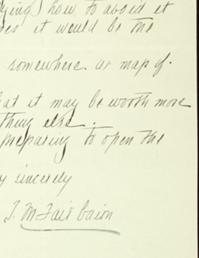 ying) how to avoid it
it would be the
somewhere as map of.
hat it may be worth more
thing else.
preparing to open the
y sincerely
T. M. Fairbairn